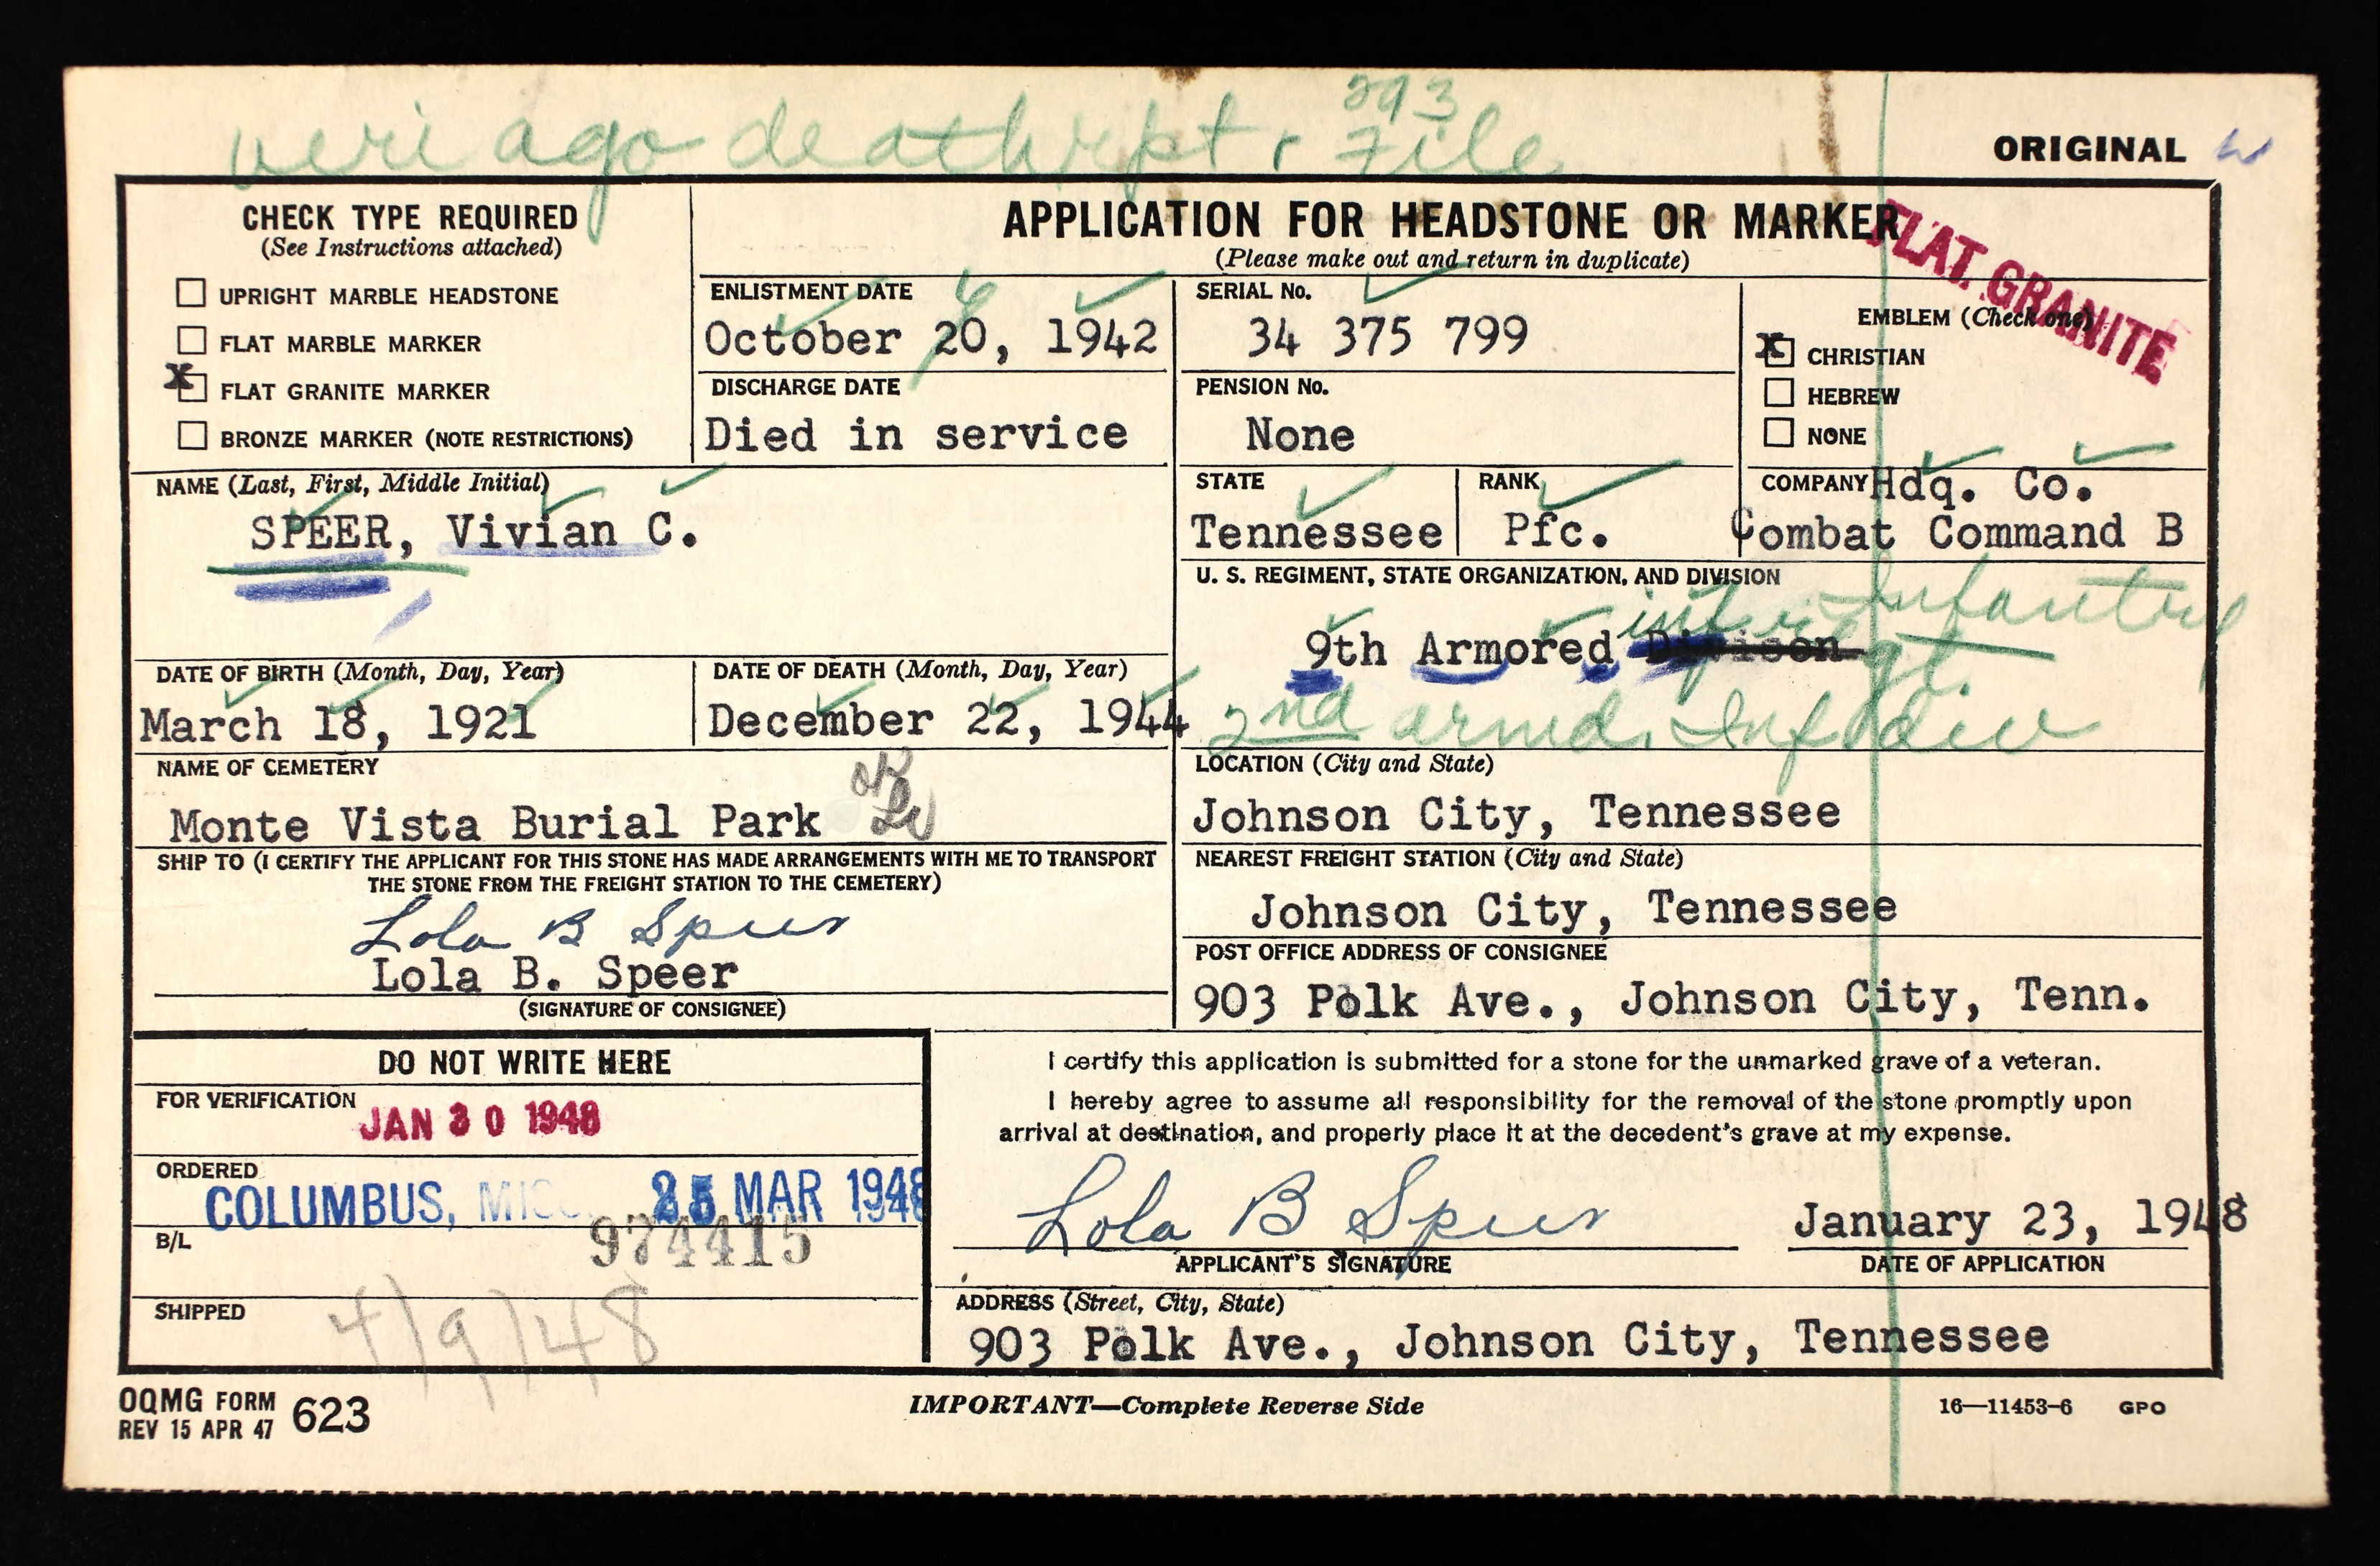 293
veri ago death rpt & File
ORIGINAL
CHECK TYPE REQUIRED
(See Instructions attached)
UPRIGHT MARBLE HEADSTONE
FLAT MARBLE MARKER
X FLAT GRANITE MARKER
BRONZE MARKER (NOTE RESTRICTIONS)
APPLICATION FOR HEADSTONE OR MARKER
(Please make out and return in duplicate)
FLAT GRANITE
ENLISTMENT DATE
6
October 20, 1942
DISCHARGE DATE
Died in service
SERIAL No.
34 375 799
PENSION No.
None
EMBLEM (Check one)
X CHRISTIAN
HEBREW
NONE
NAME (Last, First, Middle Initial)
SPEER, Vivian C.
STATE
Tennessee
RANK
Pfc.
COMPANY Hdq. Co.
Combat Command B
U. S. REGIMENT, STATE ORGANIZATION, AND DIVISION
Infantry
9th Armored Divison
2nd armd. Inf div
DATE OF BIRTH (Month, Day, Year)
March 18, 1921
DATE OF DEATH (Month, Day, Year)
December 22, 1944
NAME OF CEMETERY
Monte Vista Burial Park
OK
LOCATION (City and State)
Johnson City, Tennessee
SHIP TO (I CERTIFY THE APPLICANT FOR THIS STONE HAS MADE ARRANGEMENTS WITH ME TO TRANSPORT
THE STONE FROM THE FREIGHT STATION TO THE CEMETERY)
Lola B Speer
Lola B. Speer
(SIGNATURE OF CONSIGNEE)
NEAREST FREIGHT STATION (City and State)
Johnson City, Tennessee
POST OFFICE ADDRESS OF CONSIGNEE
903 Polk Ave., Johnson City, Tenn.
DO NOT WRITE HERE
FOR VERIFICATION
JAN 30 1948
ORDERED
COLUMBUS, MISS. 25 MAR 1948
B/L
974415
SHIPPED
4/9/48
I certify this application is submitted for a stone for the unmarked grave of a veteran.
I hereby agree to assume all responsibility for the removal of the stone promptly upon
arrival at destination, and properly place it at the decedent's grave at my expense.
Lola B Speer
APPLICANT'S SIGNATURE
January 23, 1948
DATE OF APPLICATION
ADDRESS (Street, City, State)
903 Polk Ave., Johnson City, Tennessee
OQMG FORM 623
REV 15 APR 47
IMPORTANT—Complete Reverse Side
16—11453-6 GPO